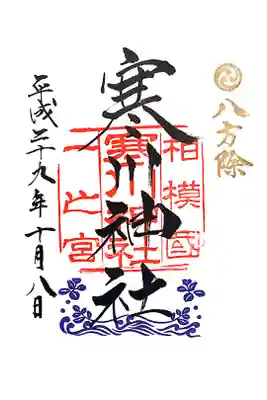 八方除
相模國
寒川神社
一之宮
寒川神社
平成二十九年十月八日